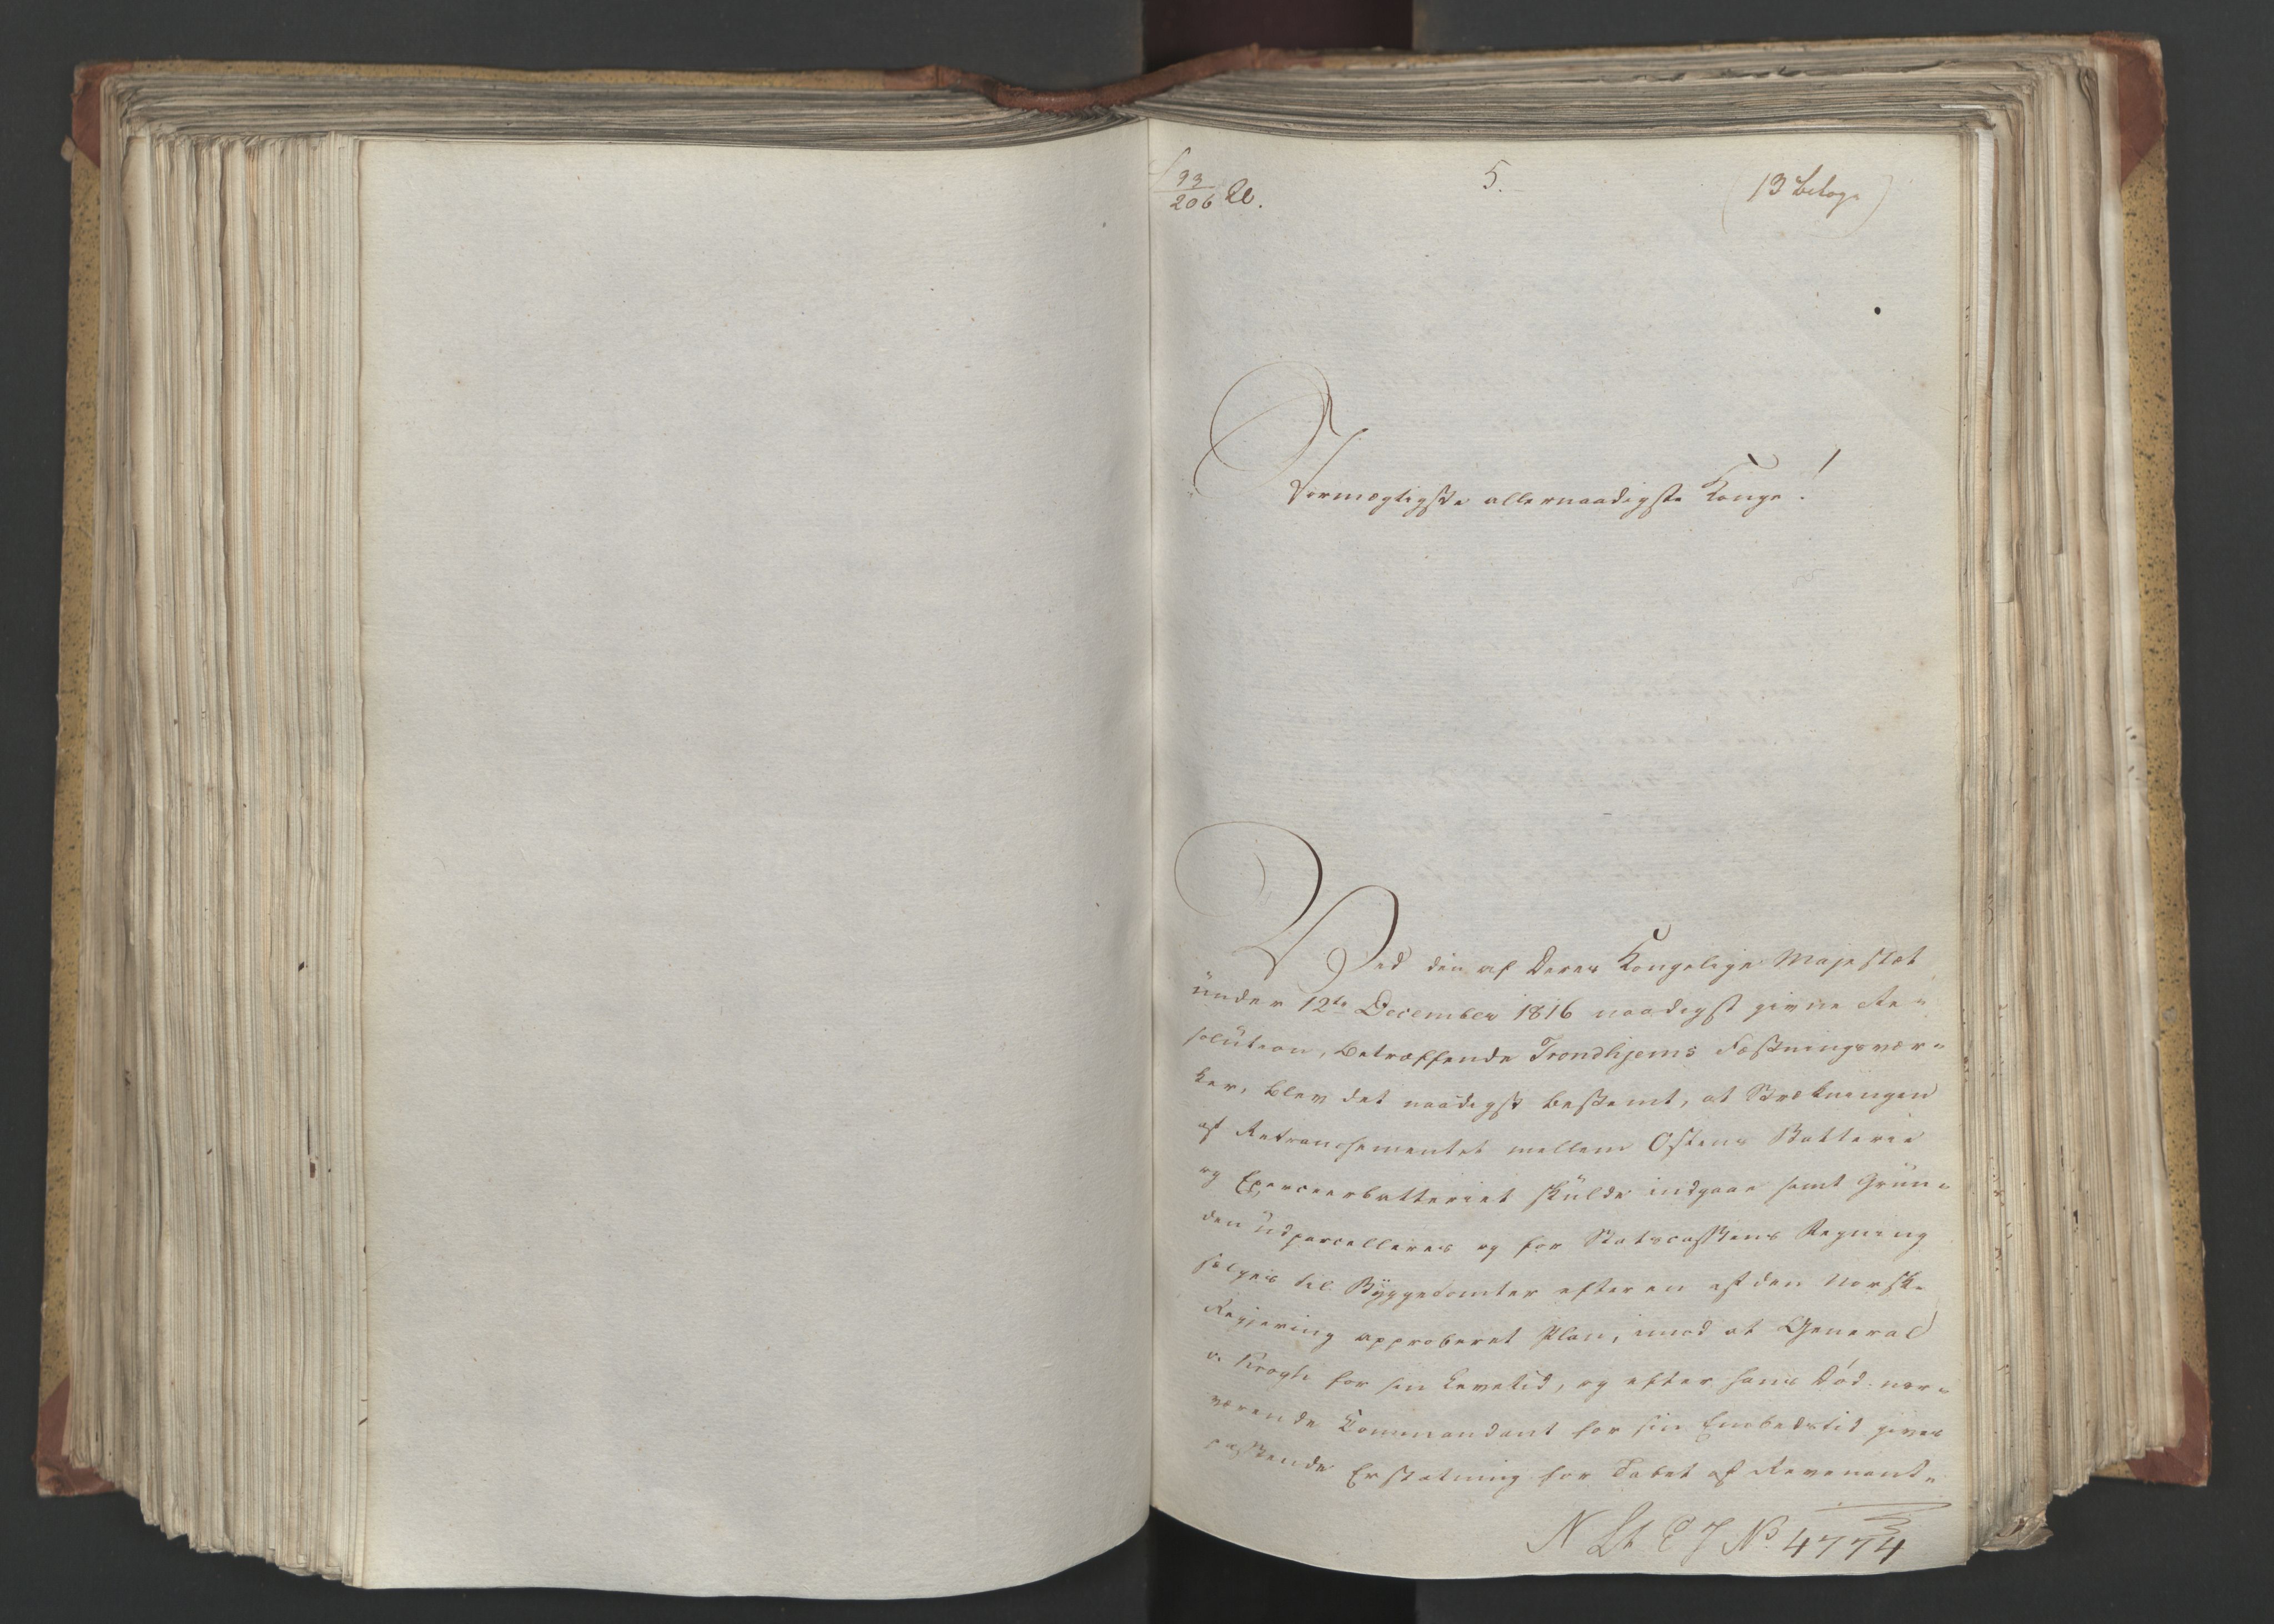 93
206
5.
(13 bilag)
Stormægtigste allernaadigste Konge!
Ved den af Deres Kongelige Majestæt
under 12te December 1816 naadigst givne Re-
solution, betræffende Trondhjems Fæstningsvær-
ker, blev det naadigst bestemt, at Strækningen
af Retranchementet mellem Østens Batterie
og Exerceerbatteriet skulde indgaae samt Grun-
den udparcelleres og for Statscassens Regning
sælges til Byggetomter efter en af den norske
Regjering approberet Plan, imod at General
v. Krogh for sin Levetid, og efter hans Død nær-
værende Kommandant for sin Embedstid gives
passende Erstatning for Tabet af Revenuen
N No 4774